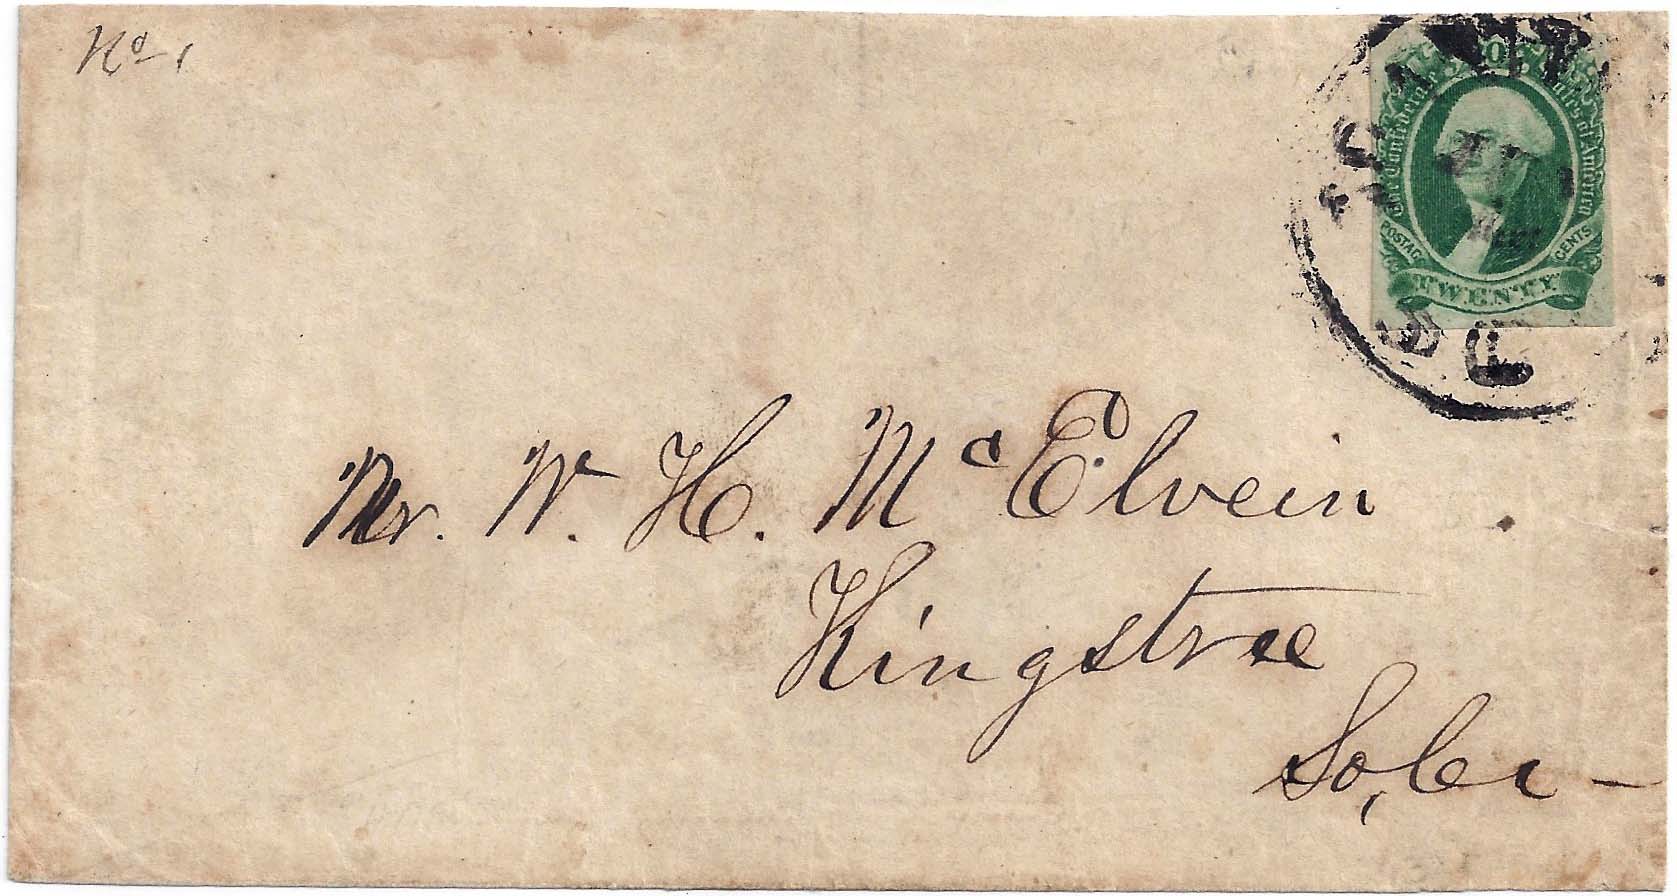 No 1
The Confederate States of America
POSTAGE CENTS
TWENTY
Mr. W. H. McElvein
Kingstree
So, Ca -